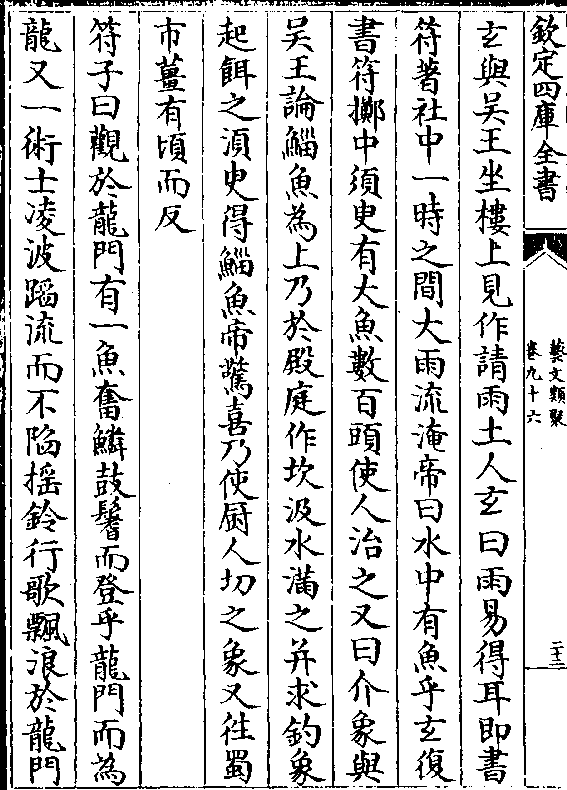 欽定四庫全書
藝文類聚
卷九十六
二十三
玄與吳王坐樓上見作請雨土人玄曰雨易得耳即書
符著社中一時之間大雨流淹帝曰水中有魚乎玄復
書符擲中須臾有大魚數百頭使人治之又曰介象與
吳王論鯔魚為上乃於殿庭作坎汲水滿之并求釣象
起餌之湏臾得鯔魚帝驚喜乃使厨人切之象又往蜀
市薑有頃而反
符子曰觀於龍門有一魚奮鱗鼓鬐而登乎龍門而為
龍又一術士凌波蹈流而不陷揺鈴行歌飄浪於龍門